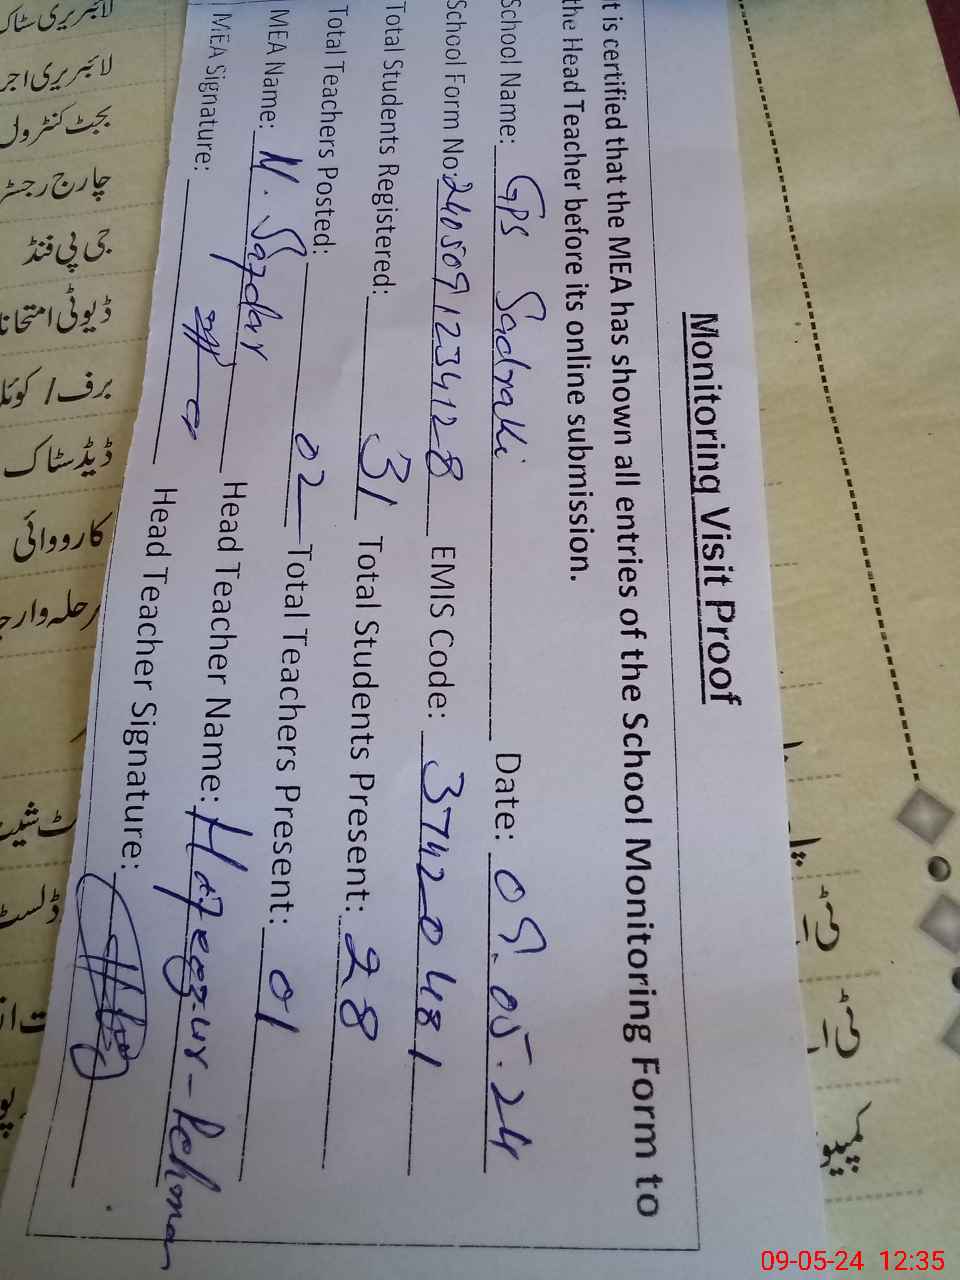 Monitoring Visit Proof
t is certified that the MEA has shown all entries of the School Monitoring Form to
the Head Teacher before its online submission.
School Name: GPS Sadraki Date: 09.05.24
School Form No: 2405091234128 EMIS Code: 37420481
Total Students Registered: 31 Total Students Present: 28
Total Teachers Posted: 02 Total Teachers Present: 01
MEA Name: M. Safdar Head Teacher Name: Hafeez-ur-Rehman
MEA Signature: Head Teacher Signature:
لائبریری سٹاک
لائبریری اجر
بجٹ کنٹرول
چارج رجسٹر
جی پی فنڈ
ڈیوٹی امتحانا
برف / کوئلہ
ڈیڈ سٹاک
کارووائی
09-05-24 12:35